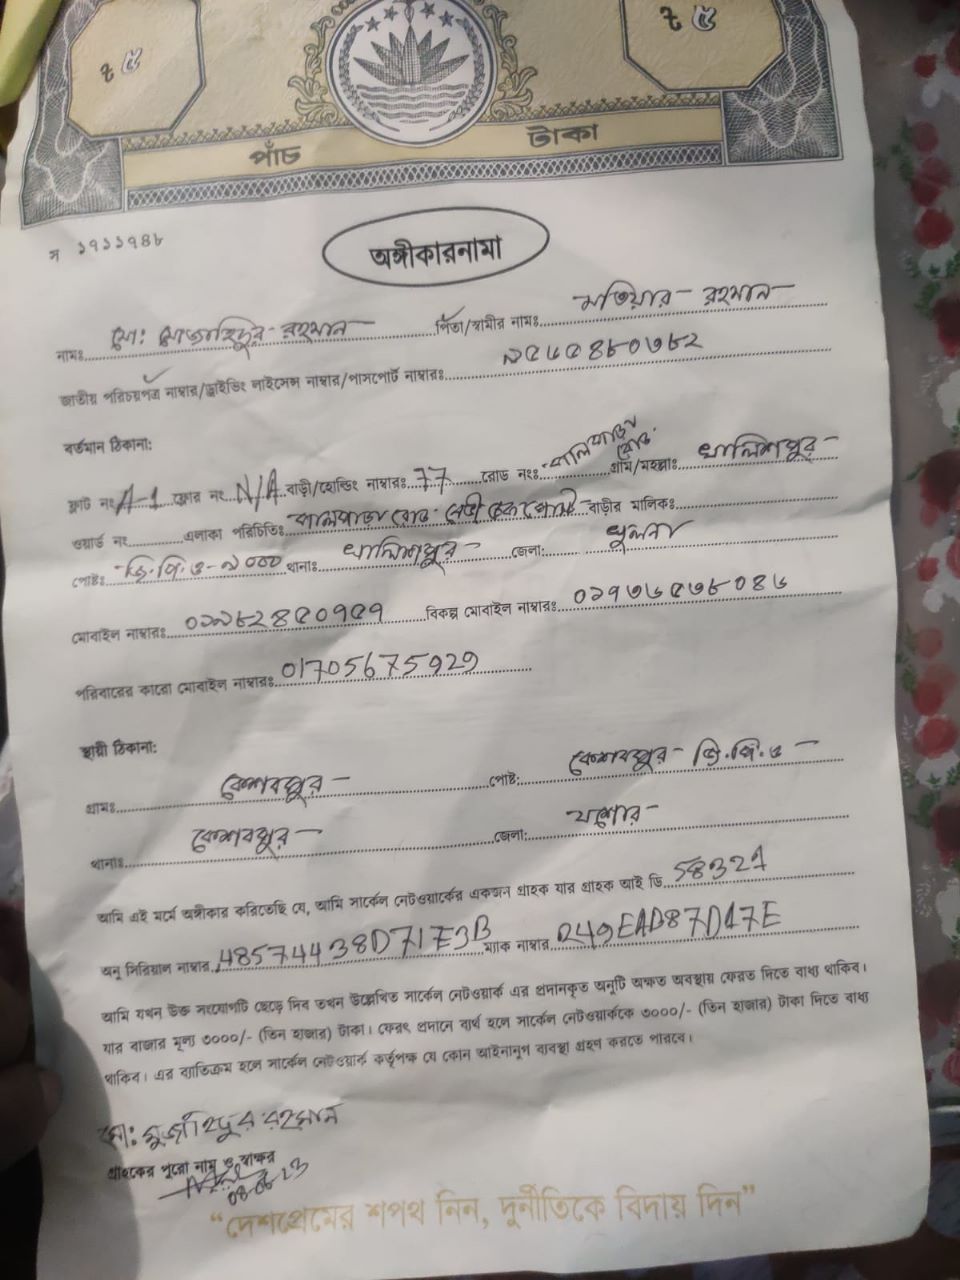 ৳ ৫ ৳ ৫
পাঁচ টাকা
স ১৭১১৭৪৮
অঙ্গীকারনামা
নামঃ মো: মোজাহিদুর রহমান পিতা/স্বামীর নামঃ মতিয়ার রহমান
জাতীয় পরিচয়পত্র নাম্বার/ড্রাইভিং লাইসেন্স নাম্বার/পাসপোর্ট নাম্বারঃ ১৫৬৫৪৮০৩৮২
বর্তমান ঠিকানা:
ফ্লাট নং A-1 ফ্লোর নং N/A বাড়ী/হোল্ডিং নাম্বারঃ 77 রোড নং: পালপাড়া রোড গ্রাম/মহল্লাঃ খালিশপুর
ওয়ার্ড নং এলাকা পরিচিতিঃ পালপাড়া রোড বাড়ীর মালিকঃ
পোষ্টঃ জি.পি.ও-৯০০০ থানাঃ খালিশপুর জেলা: খুলনা
মোবাইল নাম্বারঃ ০১৯৮২৪৫০৭৫৭ বিকল্প মোবাইল নাম্বারঃ ০১৭৩৬৫৩৮০৪৬
পরিবারের কারো মোবাইল নাম্বারঃ 01705675929
স্থায়ী ঠিকানা:
গ্রামঃ কেশবপুর পোষ্ট: কেশবপুর জি.পি.ও
থানাঃ কেশবপুর জেলা: যশোর
আমি এই মর্মে অঙ্গীকার করিতেছি যে, আমি সার্কেল নেটওয়ার্কের একজন গ্রাহক যার গ্রাহক আই ডি 58321
অনু সিরিয়াল নাম্বার 48574438D717E3B ম্যাক নাম্বার D249EAD87D17E
আমি যখন উক্ত সংযোগটি ছেড়ে দিব তখন উল্লেখিত সার্কেল নেটওয়ার্ক এর প্রদানকৃত অনুটি অক্ষত অবস্থায় ফেরত দিতে বাধ্য থাকিব।
যার বাজার মূল্য ৩০০০/- (তিন হাজার) টাকা। ফেরৎ প্রদানে ব্যর্থ হলে সার্কেল নেটওয়ার্ককে ৩০০০/- (তিন হাজার) টাকা দিতে বাধ্য
থাকিব। এর ব্যতিক্রম হলে সার্কেল নেটওয়ার্ক কর্তৃপক্ষ যে কোন আইনানুগ ব্যবস্থা গ্রহণ করতে পারবে।
মো: মুজাহিদুর রহমান
গ্রাহকের পুরো নাম ও স্বাক্ষর
08-06-23
“দেশপ্রেমের শপথ নিন, দুর্নীতিকে বিদায় দিন”